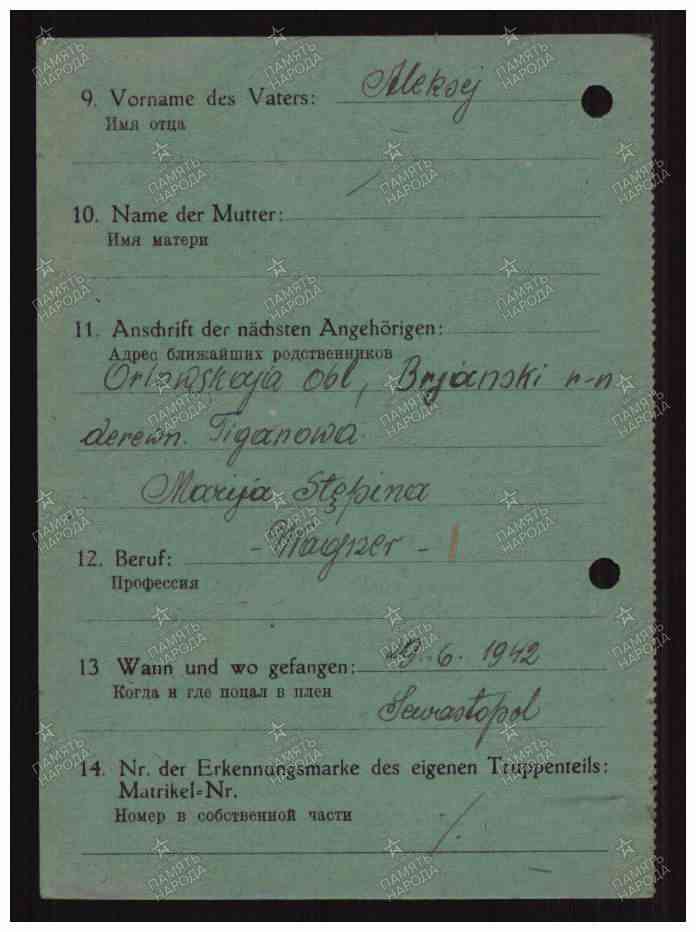 9. Vorname des Vaters: Aleksej
Имя отца
10. Name der Mutter:
Имя матери
11. Anschrift der nächsten Angehörigen:
Адрес ближайших родственников
Orlowskaja obl, Brjanski r-n
derewn. Tiganowa
Marija Stępina
12. Beruf: - Wagner -
Профессия
13 Wann und wo gefangen: 29.6. 1942
Когда и где попал в плен
Sewastopol
14. Nr. der Erkennungsmarke des eigenen Truppenteils:
Matrikel=Nr.
Номер в собственной части
ПАМЯТЬ НАРОДА